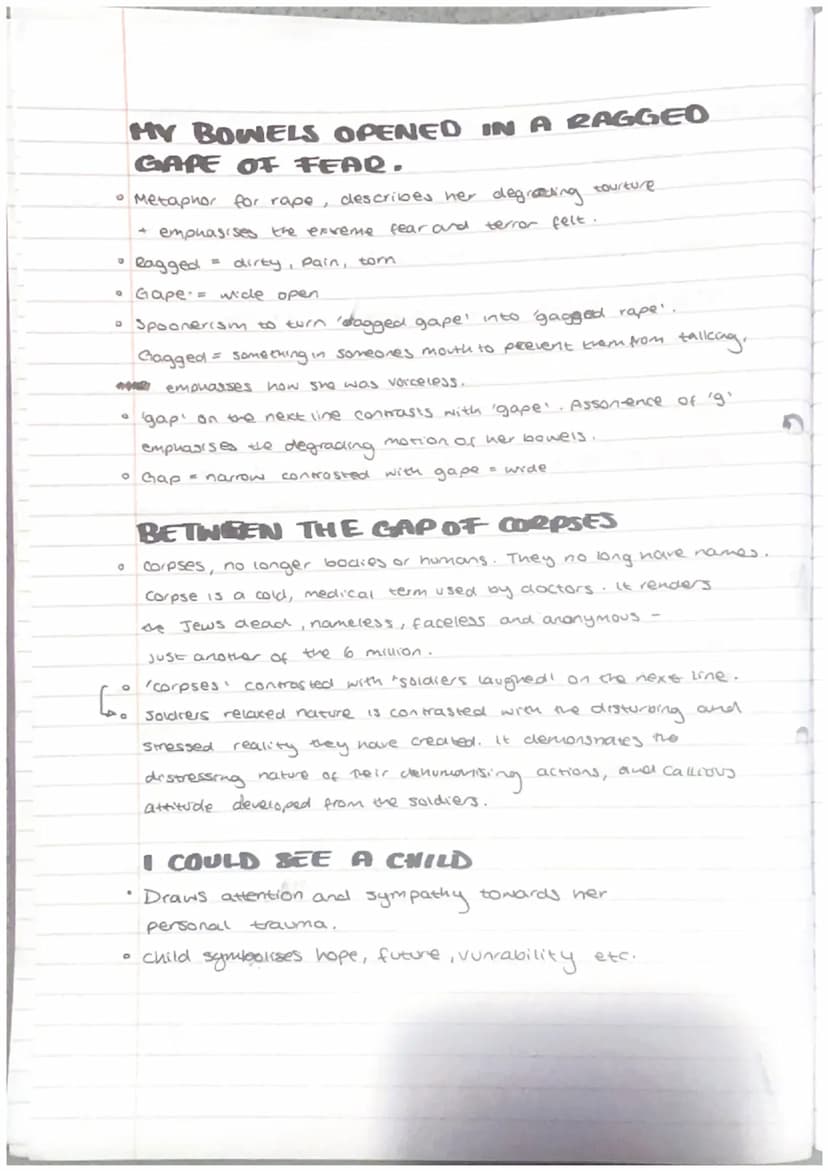 MY BOWELS OPENED IN A RAGGED
GAPE OF FEAR.
• Metaphor for rape, describes her degrading tourture
+ emphasises the extreme fear and terror felt.
• Ragged = dirty, pain, torn
• Gape = wide open
• Spoonerism to turn 'dagged gape' into 'gagged rape'.
Gagged = something in someones mouth to prevent them from talking,
emphasises how she was voiceless.
• 'gap' on the next line contrasts with 'gape'. Assonence of 'g'
emphasises the degrading motion of her bowels.
• Gap = narrow contrasted with gape = wide
BETWEEN THE GAP OF CORPSES
• corpses, no longer bodies or humans. They no long have names.
Corpse is a cold, medical term used by doctors. It renders
the Jews dead, nameless, faceless and anonymous -
just another of the 6 million.
• 'corpses' contrasted with 'soldiers laughed' on the next line.
• Soldiers relaxed nature is contrasted with the disturbing and
stressed reality they have created. It demonstrates the
distressing nature of their dehumanising actions, and callous
attitude developed from the soldiers.
I COULD SEE A CHILD
• Draws attention and sympathy towards her
personal trauma.
• child symbolises hope, future, vunrability etc.